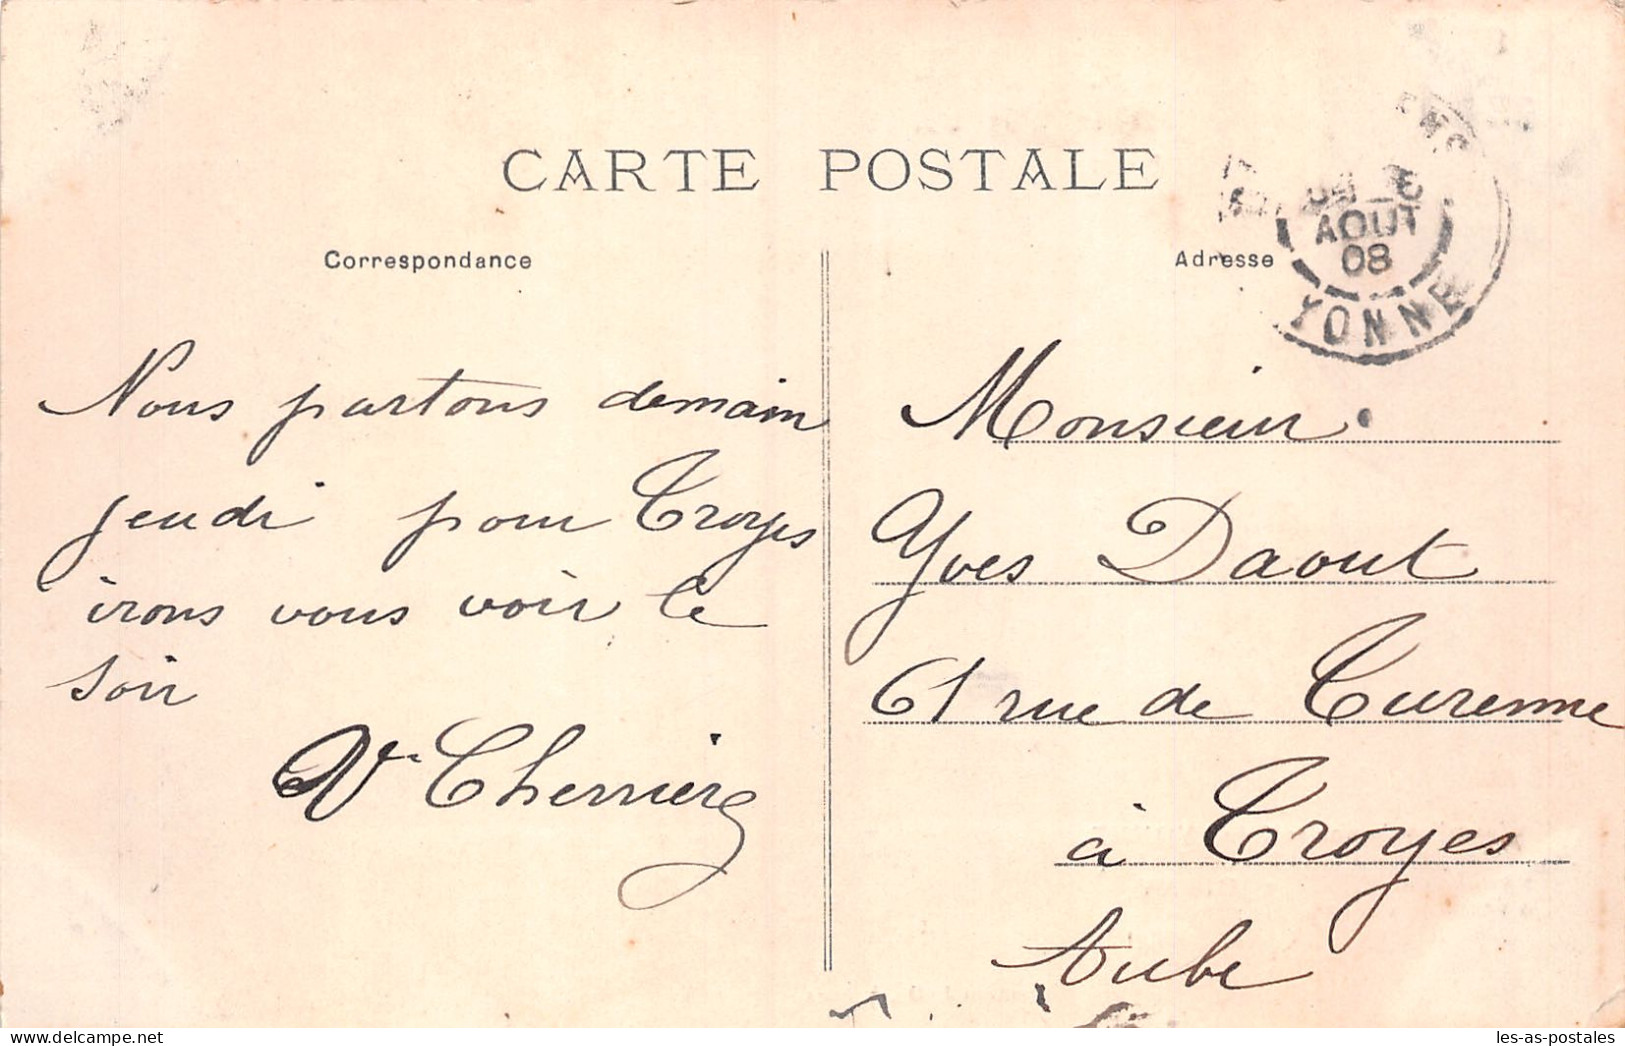 CARTE POSTALE
Correspondance
Nous partons demain
jeudi pour Troyes
irons vous voir le
soir
Vr Cherrier
Adresse
AOUT
08
YONNE
Monsieur
Yves Daout
61 rue de Turenne
à Troyes
Aube
les-as-postales